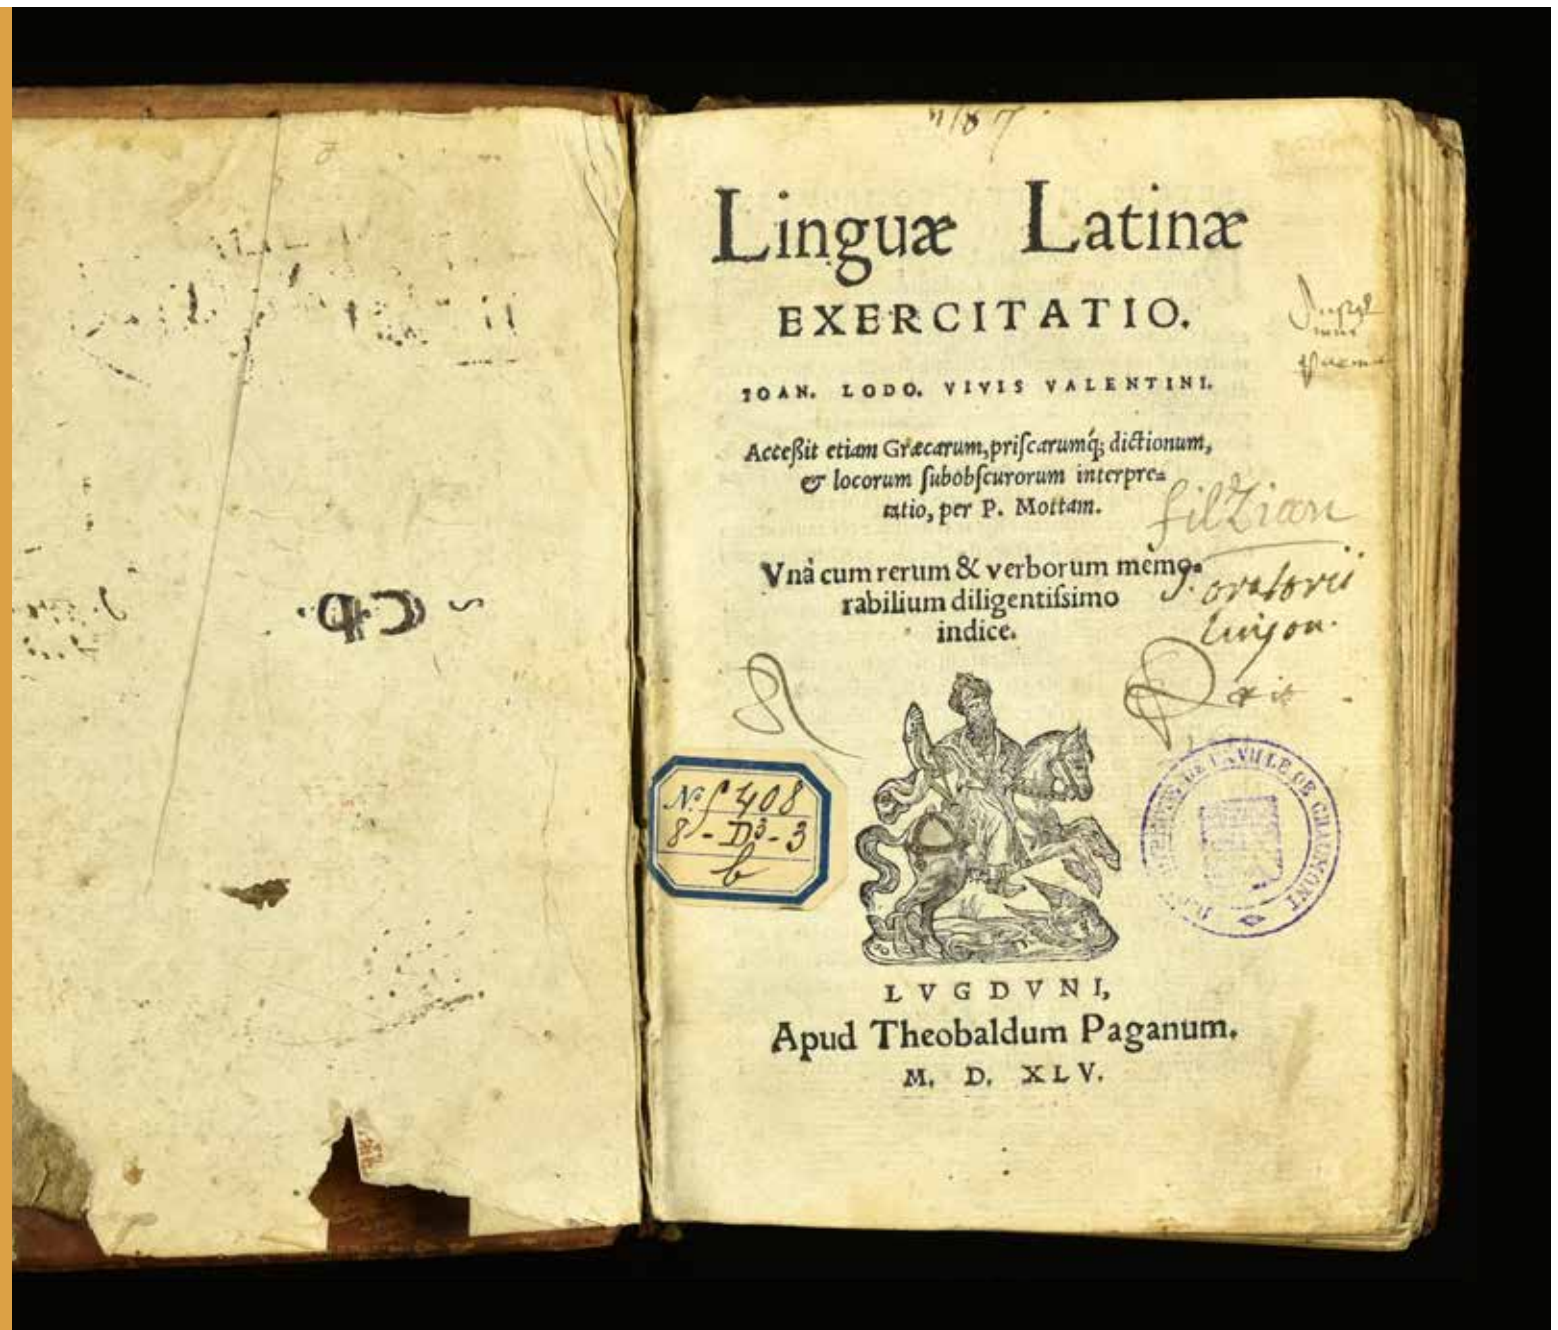 Linguæ Latinæ
EXERCITATIO.
IOAN. LODO. VIVIS VALENTINI.
Acceßit etiam Græcarum, priſcarumq́; dictionum,
& locorum ſubobſcurorum interpre=
tatio, per P. Mottam.
Vnà cum rerum & verborum memo=
rabilium diligentiſsimo
indice.
oratorii
N.º 408
8 - D3 - 3
b
DE LA VILLE DE CHAUMONT
LVGDVNI,
Apud Theobaldum Paganum.
M. D. XLV.